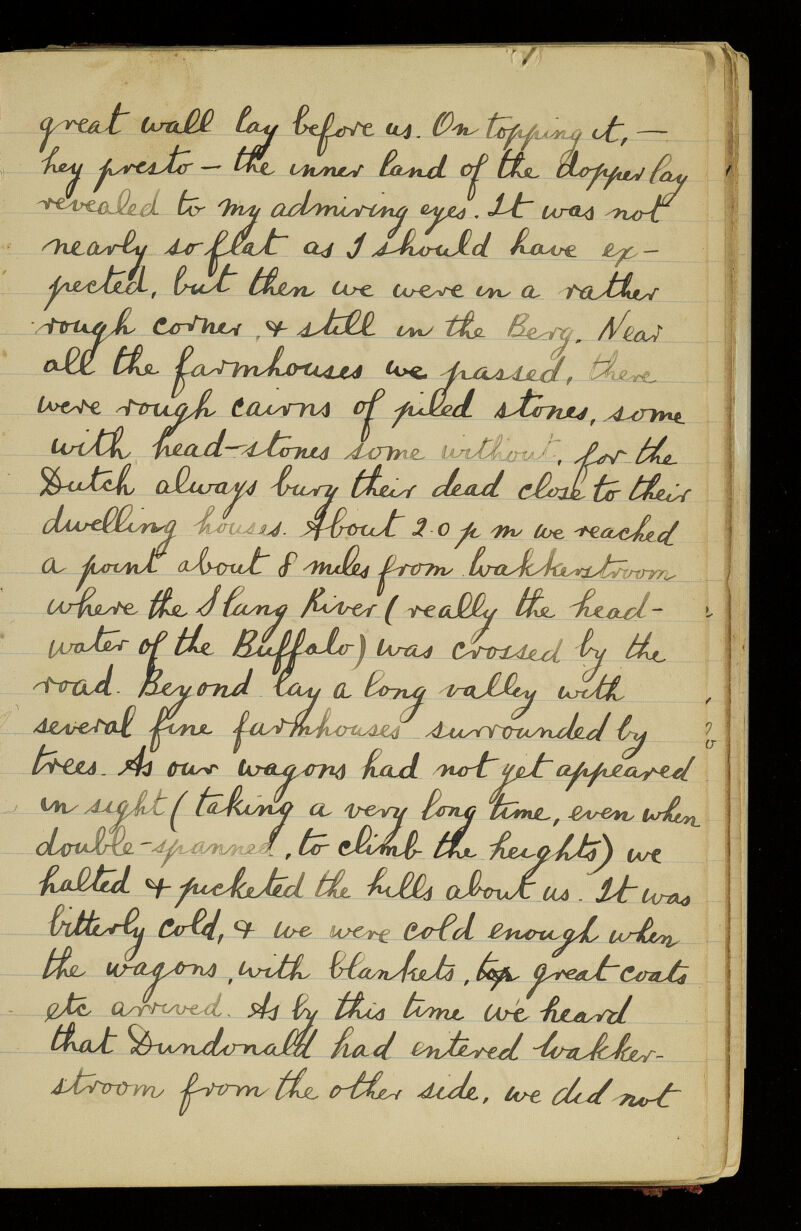 great wall lay before us. On topping it, —
hey presto — the inner land of the dopper lay
revealed to my admiring eyes. It was not
nearly so flat as I should have ex-
pected, but then we were in a rather
rough corner, & still in the Berg. Near
all the farmhouses we passed, there
were rough cairns of piled stones, some
with head-stones some without, for the
Dutch always bury their dead close to their
dwelling houses. About 2.0 p m we reached
a point about 8 miles from Wakkerstroom
where the Slang River (really the head-
water of the Buffalo) was crossed by the
road. Beyond lay a long valley with
several fine farmhouses surrounded by
trees. As our wagons had not yet appeared
in sight (taking a very long time, even when
double-spanned, to climb the heights) we
halted & picketed the hills about us. It was
bitterly cold, & we were cold enough when
the wagons, with blankets, top great coats
etc arrived. As by this time we heard
that Dundonald had entered Wakker-
stroom from the other side, we did not